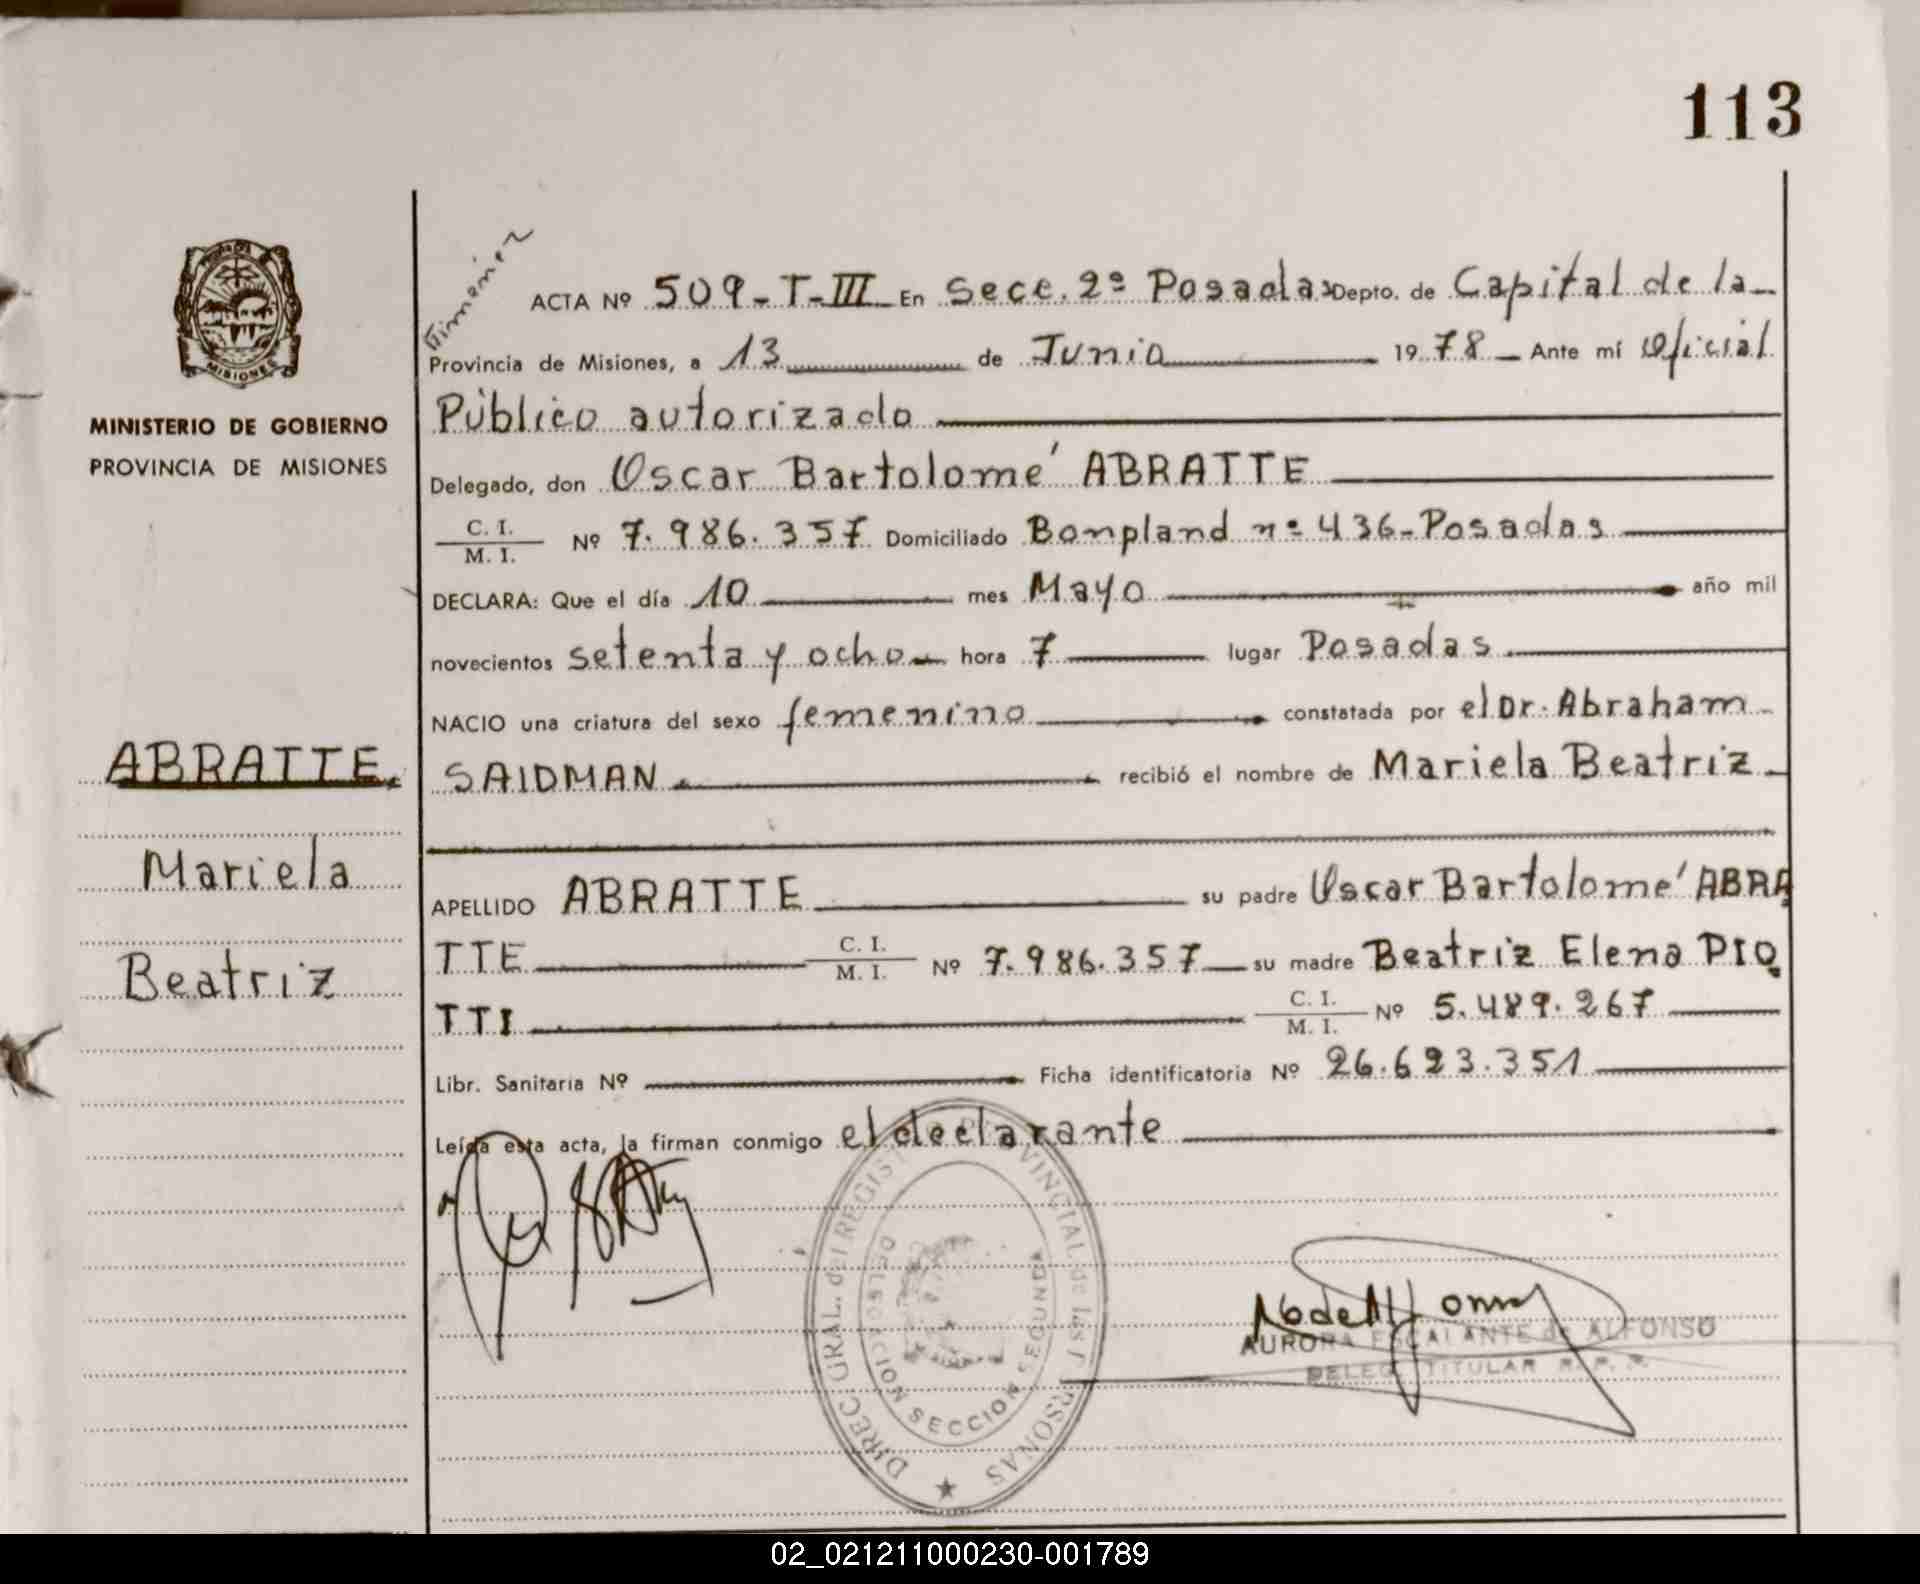 113
MISIONES
MINISTERIO DE GOBIERNO
PROVINCIA DE MISIONES
ABRATTE
Mariela
Beatriz
ACTA Nº 509-T-III En Secc. 2º Posadas Depto. de Capital de la
Provincia de Misiones, a 13 de Junio 1978 Ante mí Oficial
Público autorizado
Delegado, don Oscar Bartolomé ABRATTE
C. I.
M. I. Nº 7.986.357 Domiciliado Bonpland nº 436-Posadas
DECLARA: Que el día 10 mes Mayo año mil
novecientos setenta y ocho hora 7 lugar Posadas
NACIO una criatura del sexo femenino constatada por el Dr. Abraham
SAIDMAN recibió el nombre de Mariela Beatriz
APELLIDO ABRATTE su padre Oscar Bartolomé ABRA
TTE C. I.
M. I. Nº 7.986.357 su madre Beatriz Elena PIO
TTI C. I.
M. I. Nº 5.489.267
Libr. Sanitaria Nº Ficha identificatoria Nº 26.623.351
Leída esta acta, la firman conmigo el declarante
DIREC. GRAL. del REGISTRO PROVINCIAL de las PERSONAS
DELEGACION SECCION SEGUNDA
AURORA ESCALANTE de ALFONSO
DELEG. TITULAR R. P. P.
02_021211000230-001789